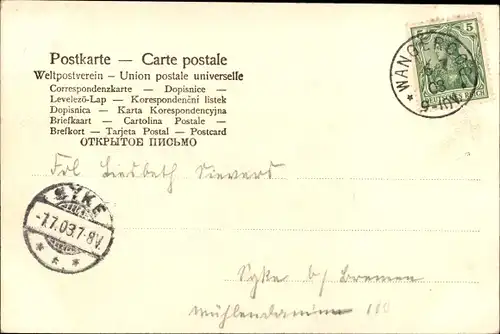 Postkarte — Carte postale
Weltpostverein – Union postale universelle
Correspondenzkarte — Dopisnice —
Levelező-Lap — Korespondenční listek
Dopisnica — Karta Korespondencyjna
Briefkaart — Cartolina Postale —
Brefkort — Tarjeta Postal — Postcard
ОТКРЫТОЕ ПИСЬМО
5
WANGEROOG
Frl Liesbeth Sievers
SYKE
-7.7.03.7-8V.
* * *
Syke b/ Bremen
Mühlendamm